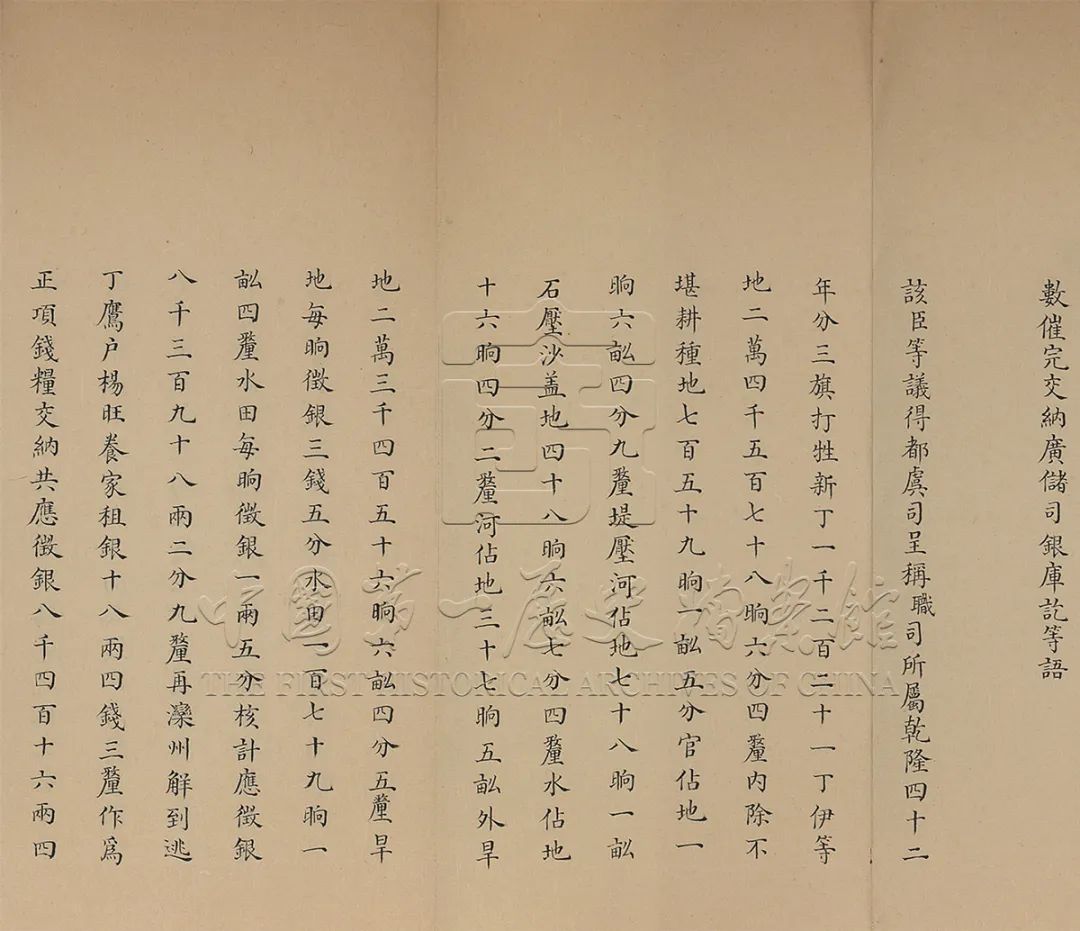 數催完交納廣儲司銀庫訖等語
該臣等議得都虞司呈稱職司所屬乾隆四十二
年分三旗打牲新丁一千二百二十一丁伊等
地二萬四千五百七十八晌六分四釐內除不
堪耕種地七百五十九晌一畝五分官佔地一
晌六畝四分九釐堤壓河佔地七十八晌一畝
石壓沙盖地四十八晌六畝七分四釐水佔地
十六晌四分二釐河佔地三十七晌五畝外旱
地二萬三千四百五十六晌六畝四分五釐旱
地每晌徵銀三錢五分水田一百七十九晌一
畝四釐水田每晌徵銀一兩五分核計應徵銀
八千三百九十八兩二分九釐再灤州解到逃
丁鷹户楊旺養家租銀十八兩四錢三釐作為
正項錢糧交納共應徵銀八千四百十六兩四
中國第一歷史檔案館
THE FIRST HISTORICAL ARCHIVES OF CHINA